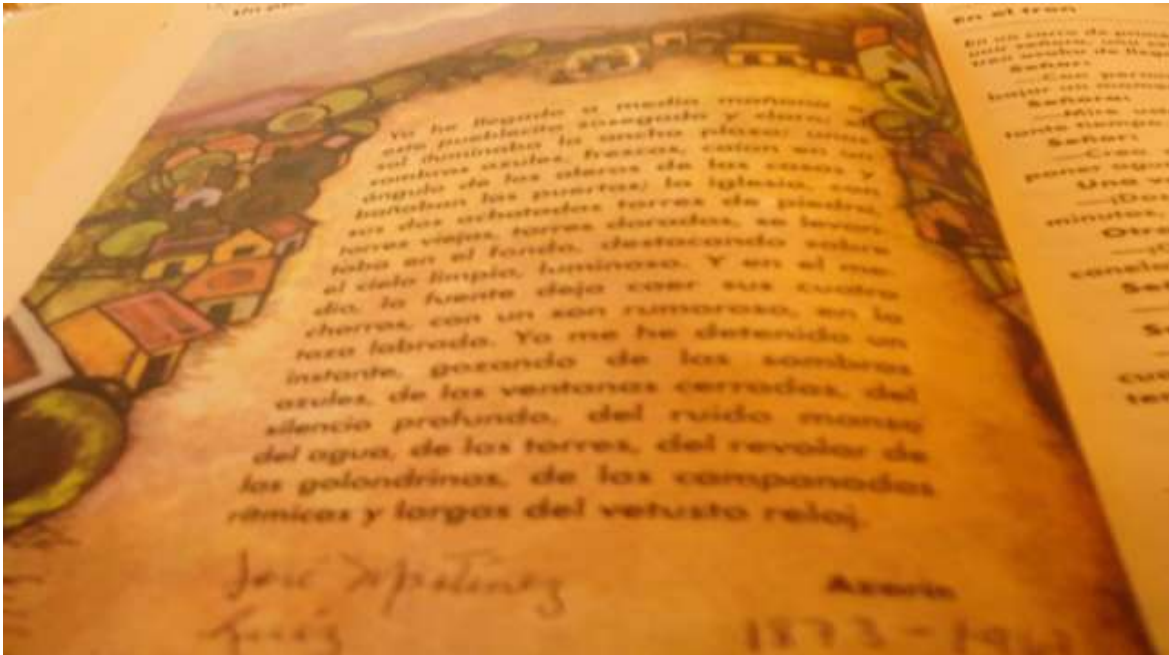 En el tren
Yo he llegado a media mañana a
este pueblecito sosegado y claro; el
sol iluminaba la ancha plaza; unas
sombras azules, frescas, caían en un
ángulo de los aleros de las casas y
bañaban las puertas; la iglesia, con
sus dos achatadas torres de piedra,
torres viejas, torres doradas, se levan-
taba en el fondo, destacando sobre
el cielo limpio, luminoso. Y en el me-
dio, la fuente deja caer sus cuatro
chorros, con un son rumoroso, en la
taza labrada. Yo me he detenido un
instante, gozando de las sombras
azules, de las ventanas cerradas, del
silencio profundo, del ruido manso
del agua, de las torres, del revolar de
las golondrinas, de las campanadas
rítmicas y largas del vetusto reloj.
José
Ruiz
Azorín
1873 -
Señor:
bajar un
Señora:
—Mire
Señor:
—Creo
poner
Una
minutos,